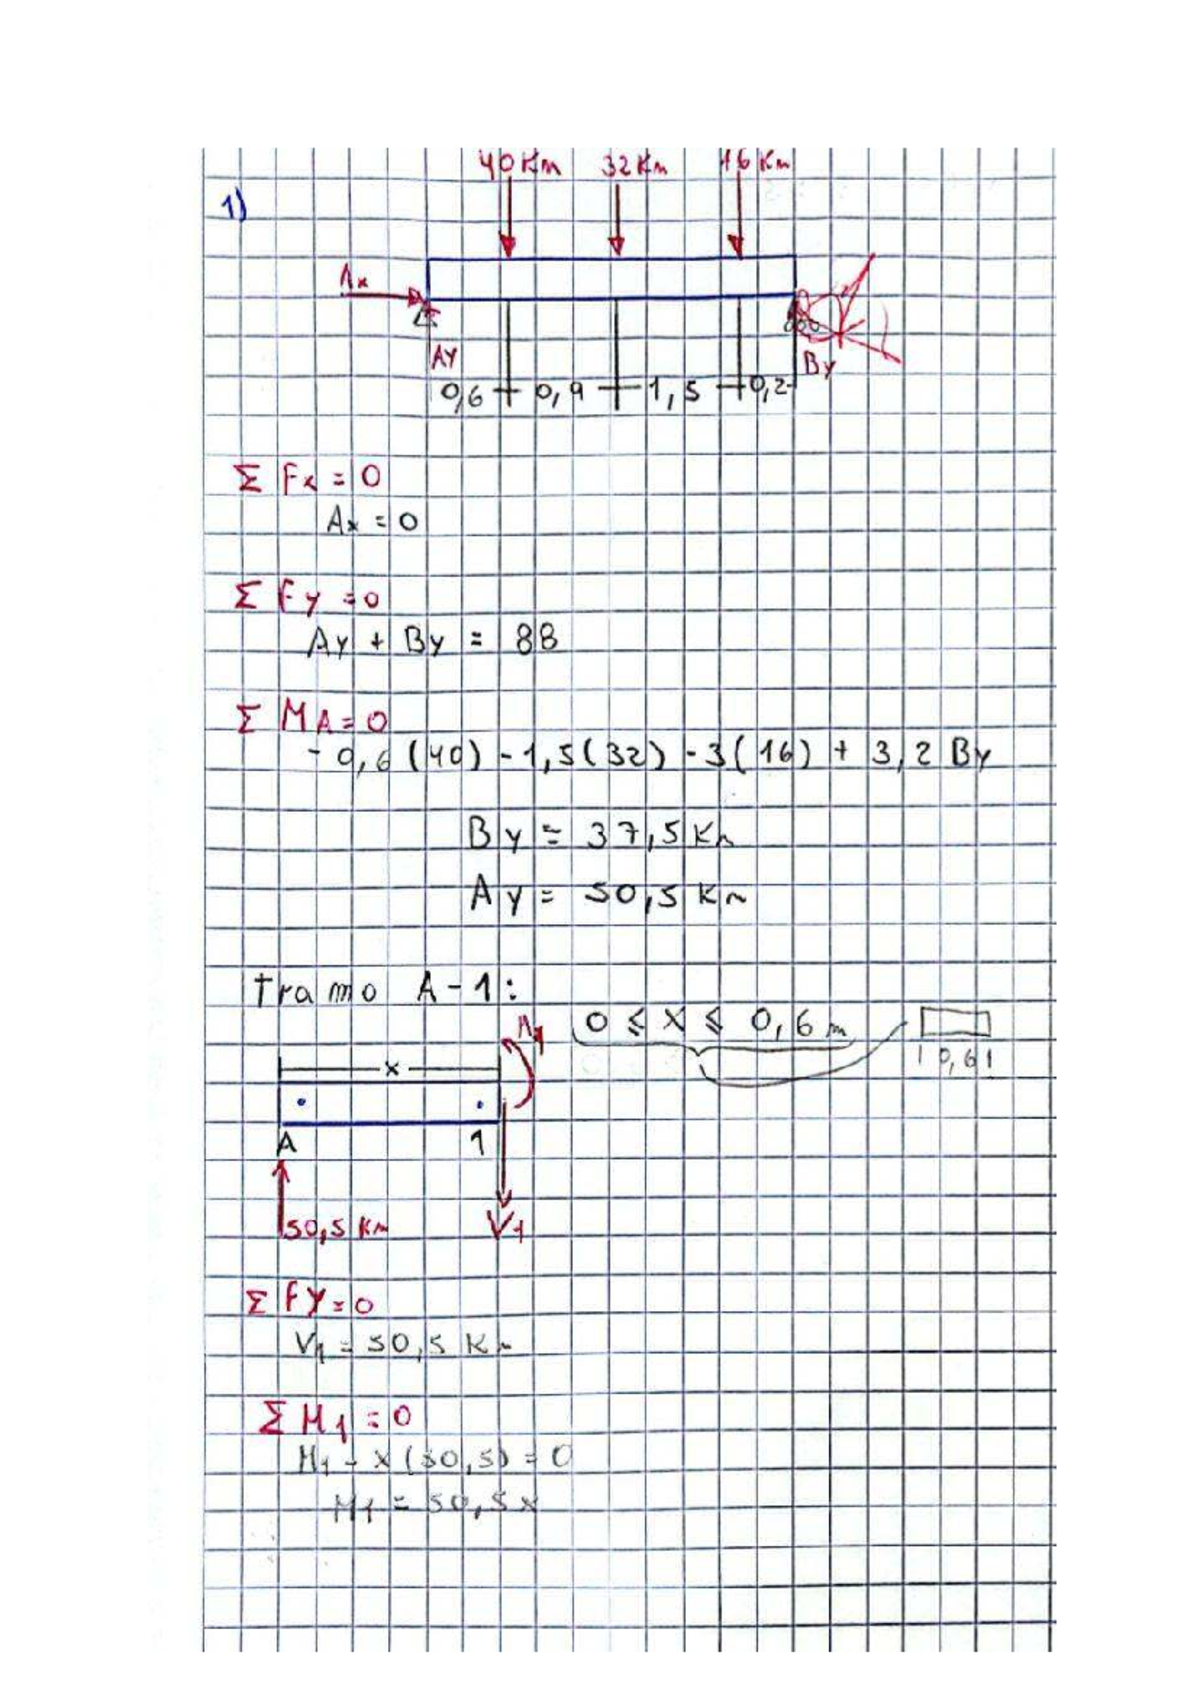 40 Kn 32 Kn 16 Kn
1)
Ax
AY By
0,6 0,9 1,5 0,2
Σ Fx = 0
Ax = 0
Σ Fy = 0
Ay + By = 88
Σ MA = 0
- 0,6 (40) - 1,5 (32) - 3 (16) + 3,2 By
By = 37,5 Kn
Ay = 50,5 Kn
Tramo A-1:
M1 0 ≤ x ≤ 0,6 m
x 0,6
A 1
50,5 Kn V1
Σ FY = 0
V1 = 50,5 Kn
Σ M1 = 0
M1 - x (50,5) = 0
M1 = 50,5 x